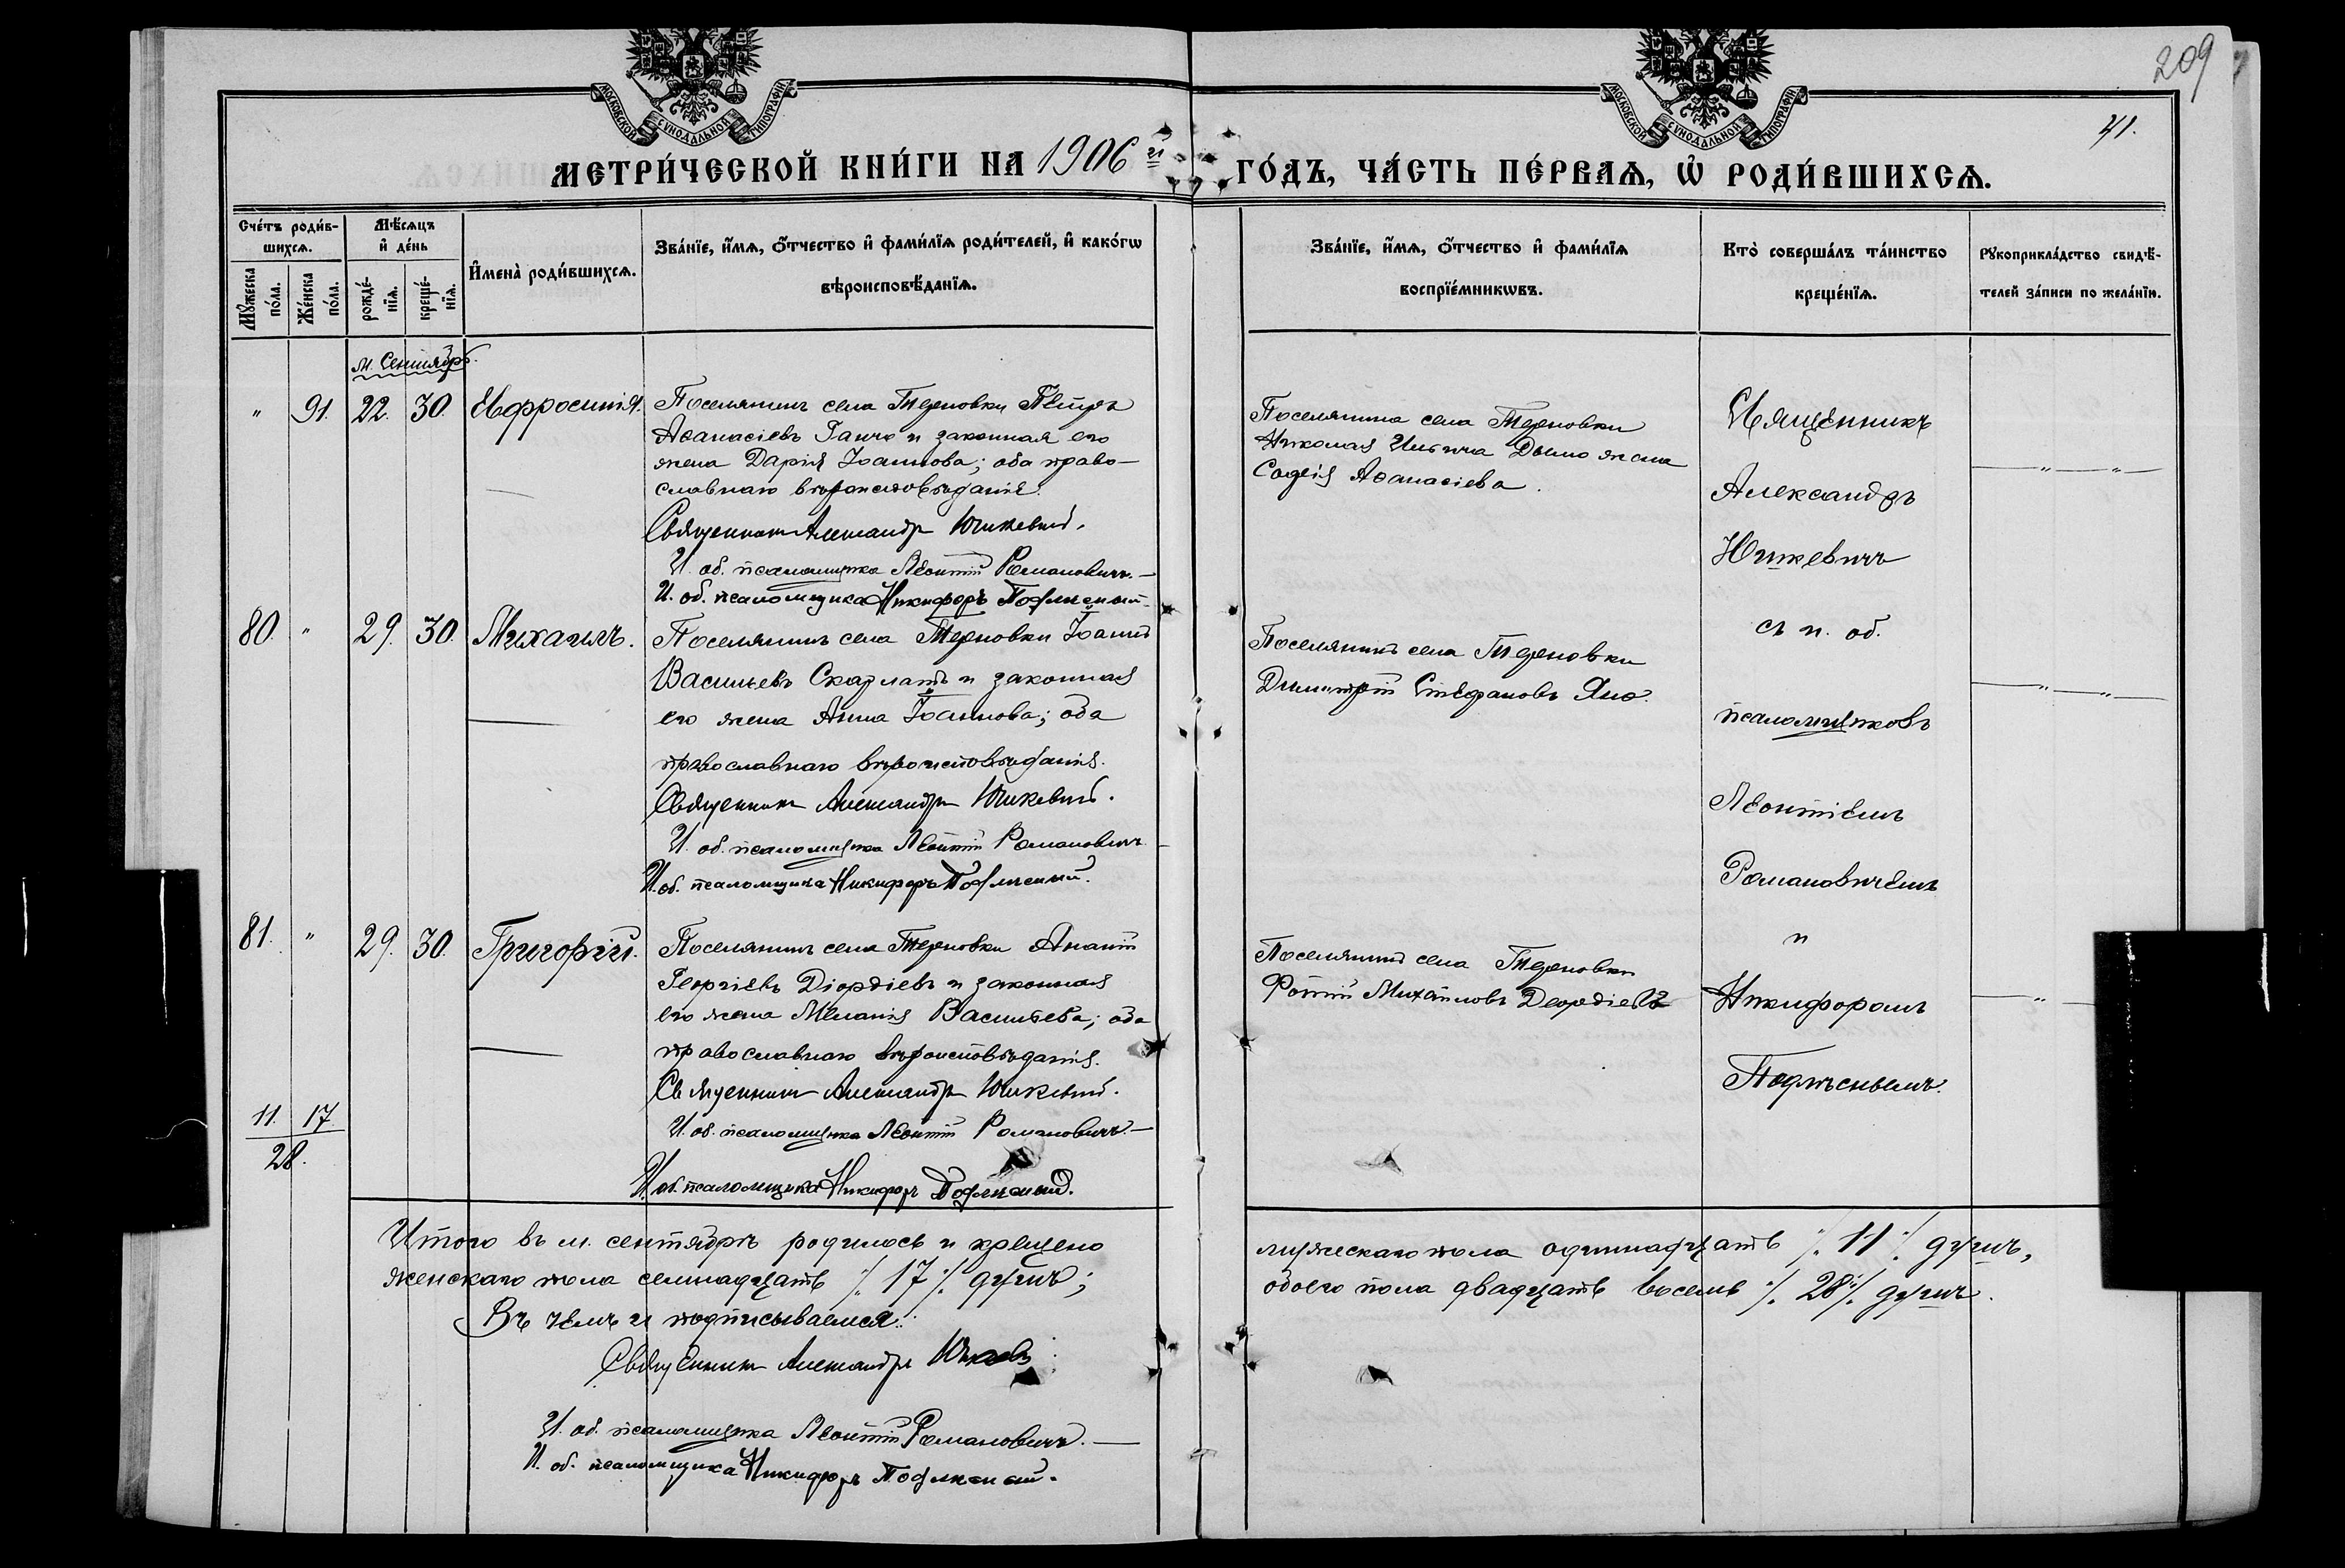 209
41.
МОСКОВСКОЙ СУНОДАЛЬНОЙ ТИПОГРАФІИ
МОСКОВСКОЙ СУНОДАЛЬНОЙ ТИПОГРАФІИ
МЕТРИ́ЧЕСКОЙ КНИ́ГИ НА 1906й ГО́ДЪ, ЧА́СТЬ ПЕ́РВАѦ, Ѽ РОДИ́ВШИХСѦ.
Сче́тъ роди́в-
шихсѧ.
Мꙋ́жеска
по́ла.
Же́нска
по́ла.
Мѣ́сѧцъ
и҆ де́нь
рожде́-
нїѧ.
креще́-
нїѧ.
И҆мена̀ роди́вшихсѧ.
Зва́нїе, и҆́мѧ, ѻ҆́тчество и҆ фами́лїѧ роди́телей, и҆ како́гѡ
вѣроисповѣ́данїѧ.
Зва́нїе, и҆́мѧ, ѻ҆́тчество и҆ фами́лїѧ
воспрїе́мникѡвъ.
Кто̀ соверша́лъ та́инство
креще́нїѧ.
Рꙋкоприкла́дство свидѣ́-
телей за́писи по жела́нїю.
м. Сентябрь.
" 91. 22. 30. Евфросинія.
Поселянинъ села Терновки Петръ
Аѳанасіевъ Ганчо и законная его
жена Дарія Іоаннова; оба право-
славнаго вѣроисповѣданія.
Священникъ Александръ Юшкевичъ.
И. об. псаломщика Леонтій Романовичъ.—
И. об. псаломщика Никифоръ Подлѣсный.
Поселянина села Терновки
Николая Ильича Дымо жена
Софія Аѳанасіева.
80. " 29. 30. Михаилъ.
Поселянинъ села Терновки Іоаннъ
Васильевъ Скарлатъ и законная
его жена Анна Іоаннова; оба
православнаго вѣроисповѣданія.
Священникъ Александръ Юшкевичъ.
И. об. псаломщика Леонтій Романовичъ
И. об. псаломщика Никифоръ Подлѣсный.
Поселянинъ села Терновки
Димитрій Стефановъ Яно.
81. " 29. 30. Григорій.
Поселянинъ села Терновки Ананій
Георгіевъ Діордіевъ и законная
его жена Меланія Васильева; оба
православнаго вѣроисповѣданія.
Священникъ Александръ Юшкевичъ.
И. об. псаломщика Леонтій Романовичъ.—
И. об. псаломщика Никифоръ Подлѣсный.
Поселянинъ села Терновки
Фотій Михайловъ Деордіевъ
Священникъ
Александръ
Юшкевичъ
съ и. об.
псаломщиковъ
Леонтіемъ
Романовичемъ
и
Никифоромъ
Подлѣснымъ.
11. 17.
28.
Итого въ м. сентябрѣ родилось и крещено мужескаго пола одиннадцать ./. 11 ./. душъ,
женскаго пола семнадцать ./. 17 ./. душъ; обоего пола двадцать восемь ./. 28 ./. душъ.
Въ чемъ и подписываемся:
Священникъ Александръ Юшкевичъ
И. об. псаломщика Леонтій Романовичъ.—
И. об. псаломщика Никифоръ Подлѣсный.